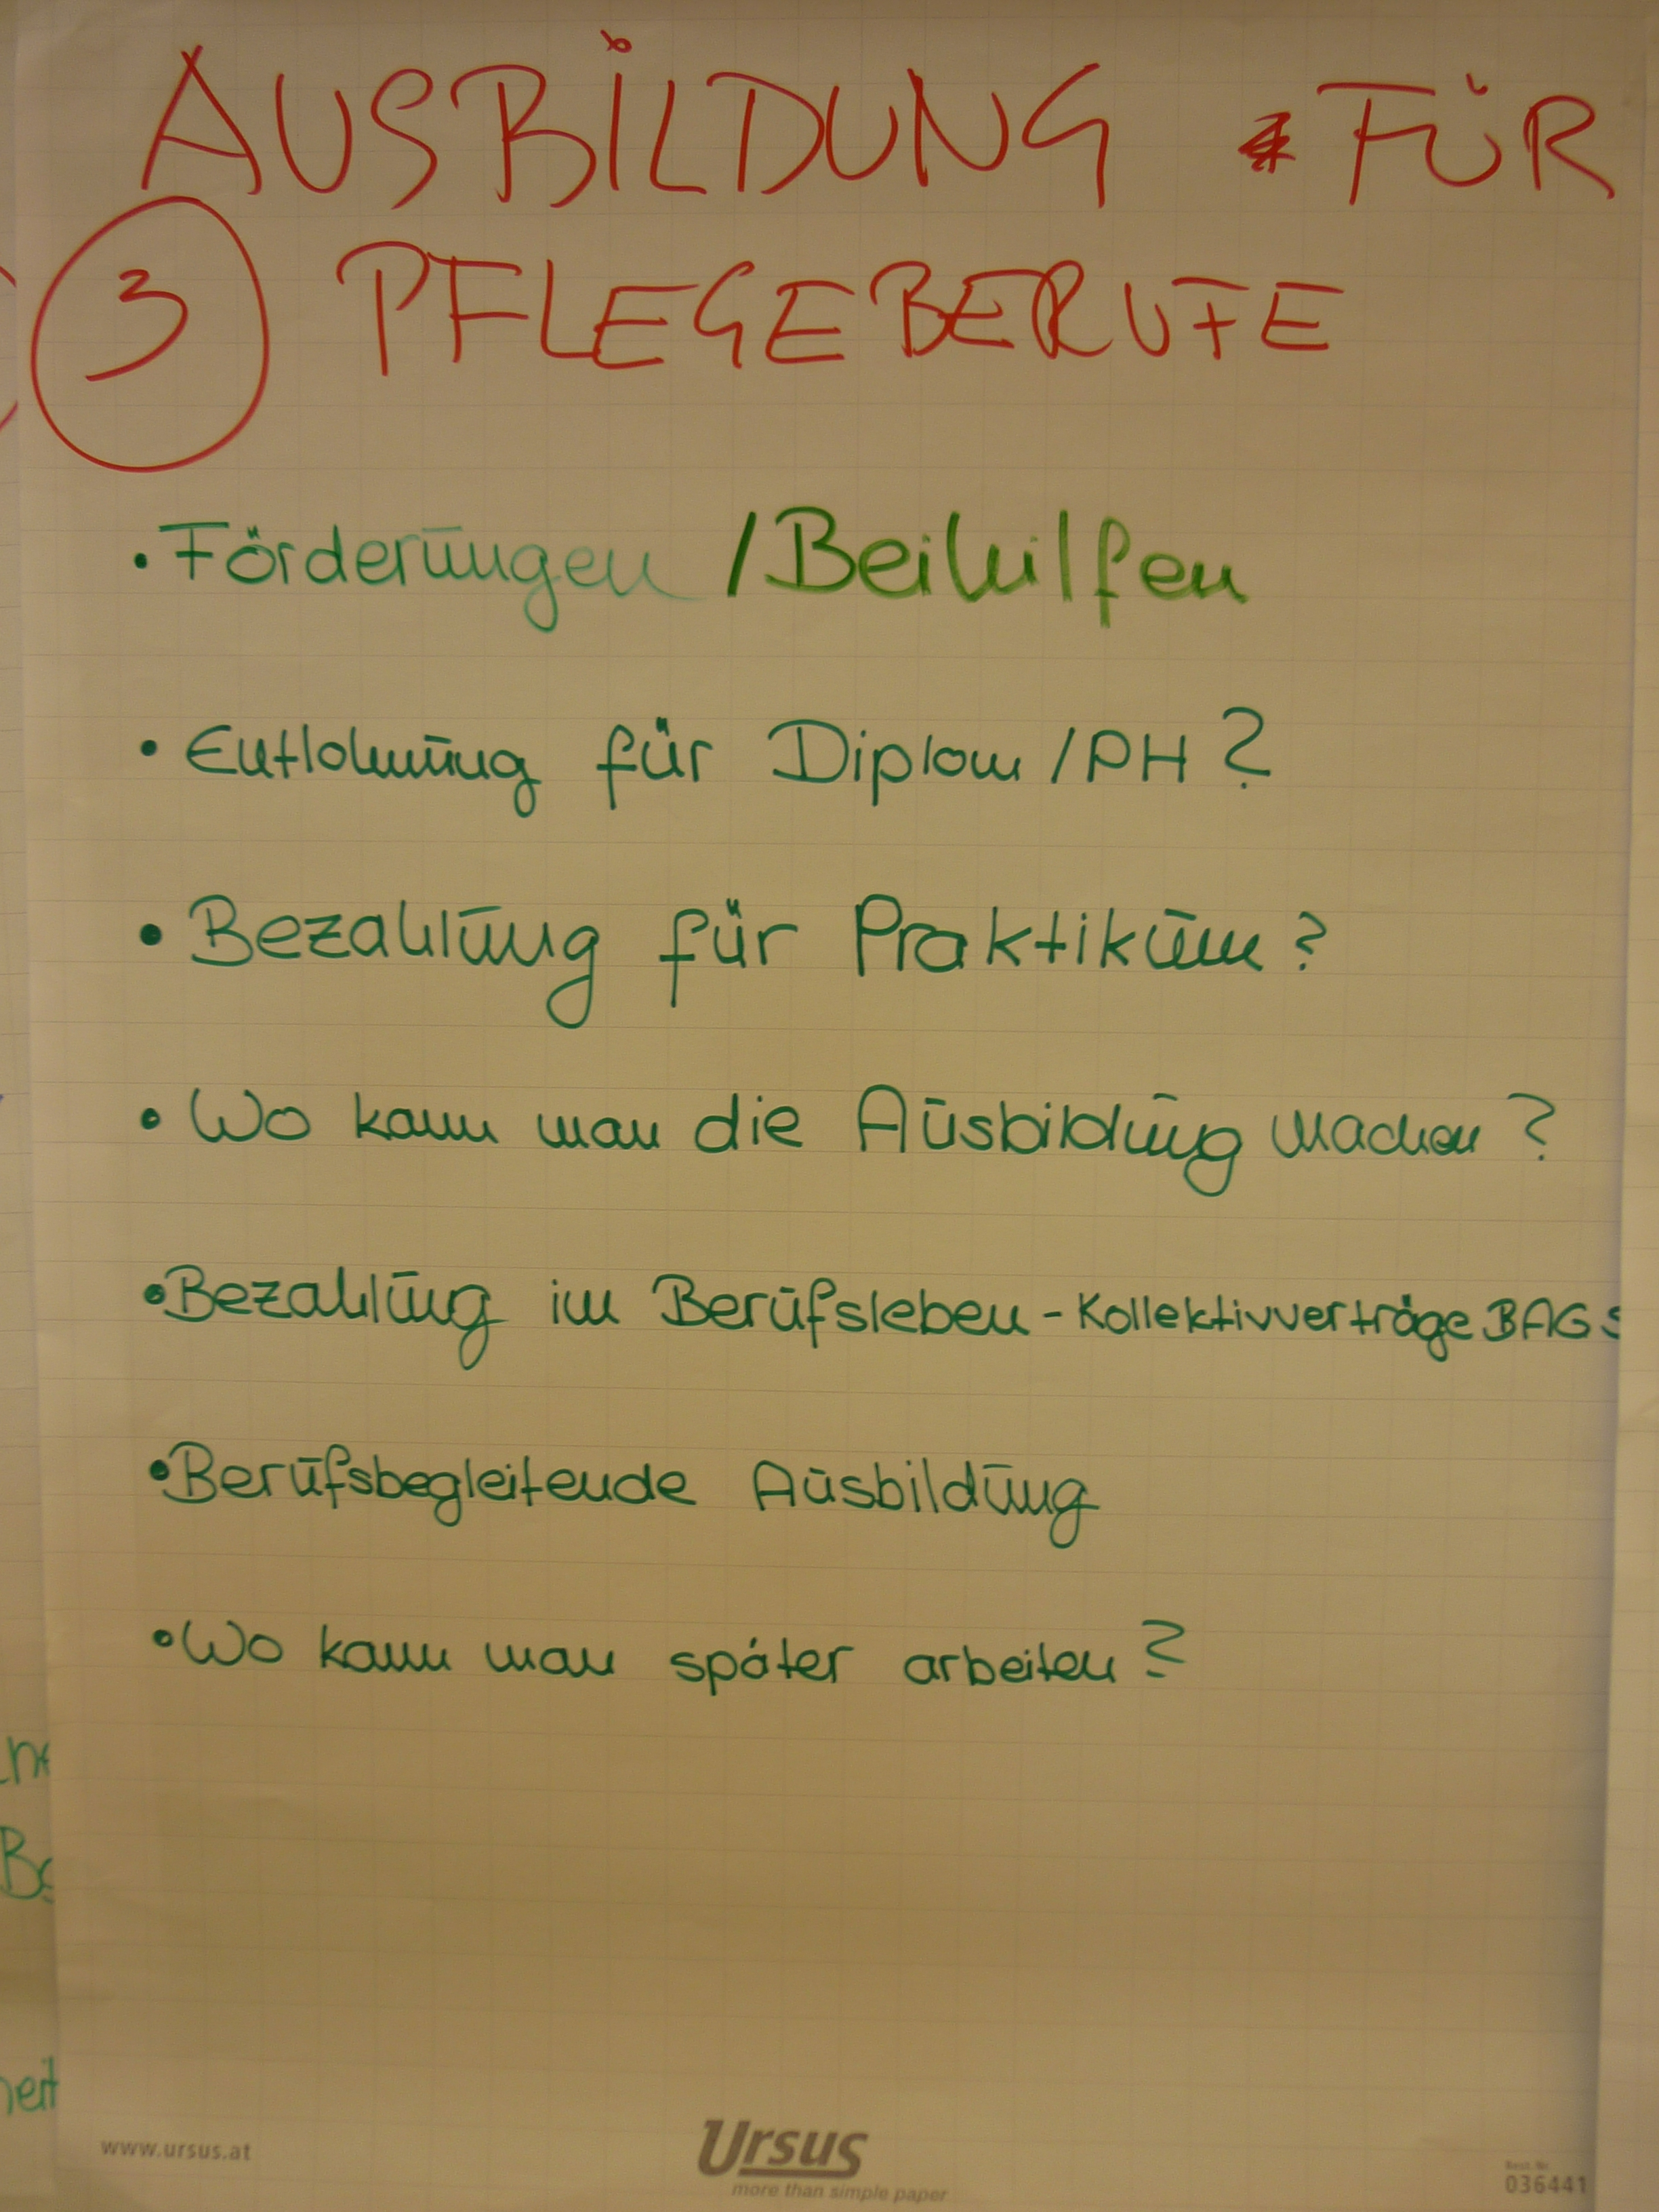 AUSBILDUNG FÜR
3 PFLEGEBERUFE
• Förderungen / Beihilfen
• Entlohnung für Diplom / PH?
• Bezahlung für Praktikum?
• Wo kann man die Ausbildung machen?
• Bezahlung im Berufsleben - Kollektivverträge BAGS
• Berufsbegleitende Ausbildung
• Wo kann man später arbeiten?
www.ursus.at
Ursus
more than simple paper
Best. Nr.
036441